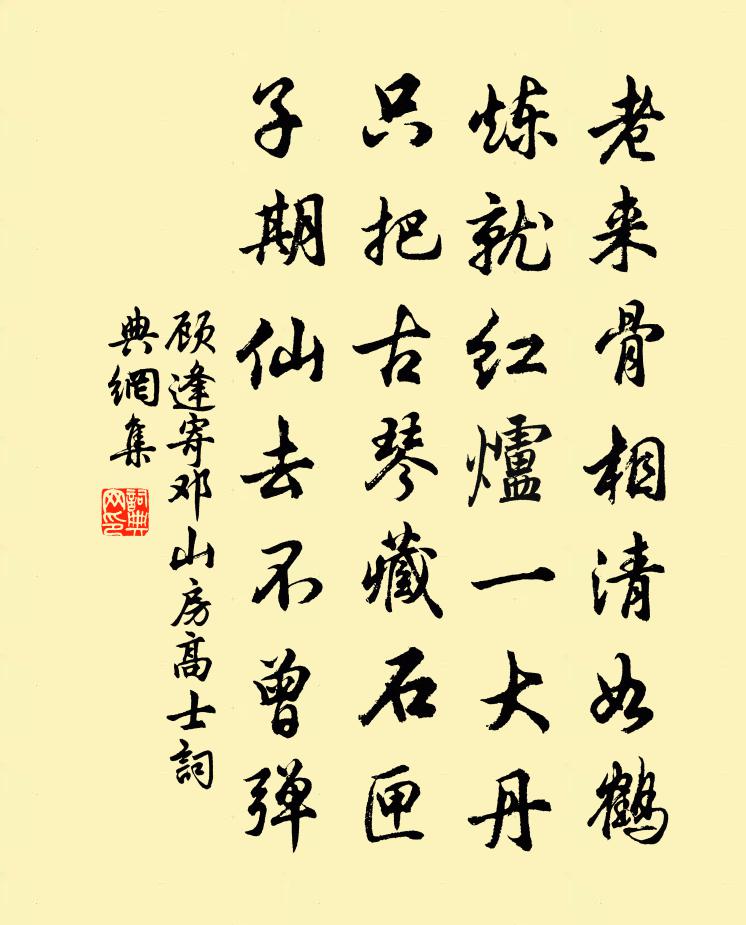 老来骨相清如鹤
炼就红爐一大丹
只把古琴藏石匣
子期仙去不曾弹
顾逢寄邓山房高士詞
典網集
詞典
网印